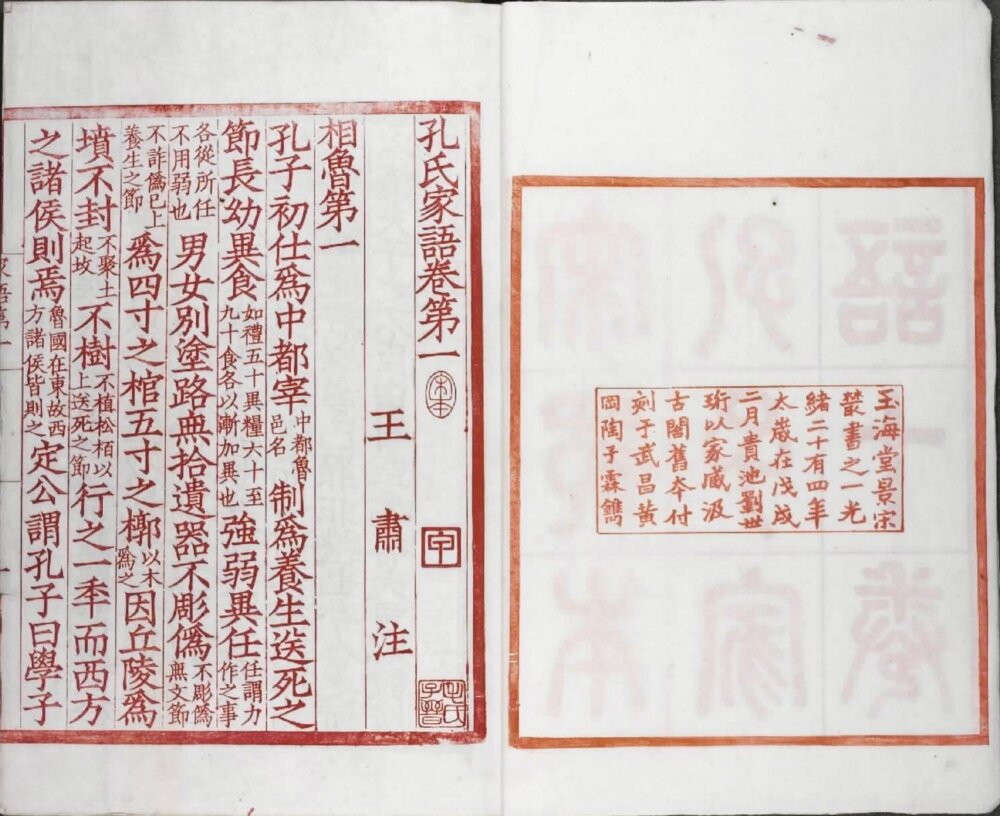 玉海堂景宋
叢書之一光
緒二十有四年
太歲在戊戌
二月貴池劉世
珩以家藏汲
古閣舊夲付
刻于武昌黃
岡陶子霖鐫
孔氏家語卷第一
王肅注
相魯第一
孔子初仕爲中都宰中都魯邑名制爲養生送死之
節長幼異食如禮五十異糧六十至九十食各以漸加異也強弱異任任謂力作之事
各從所任不用弱也男女別塗路無拾遺器不彫僞不彫僞無文節
不詐僞已上養生之節爲四寸之棺五寸之槨以木爲之因丘陵爲
墳不封不聚土起坟不樹不植松栢以上送死之節行之一年而西方
之諸侯則焉魯國在東故西方諸侯皆則之定公謂孔子曰學子